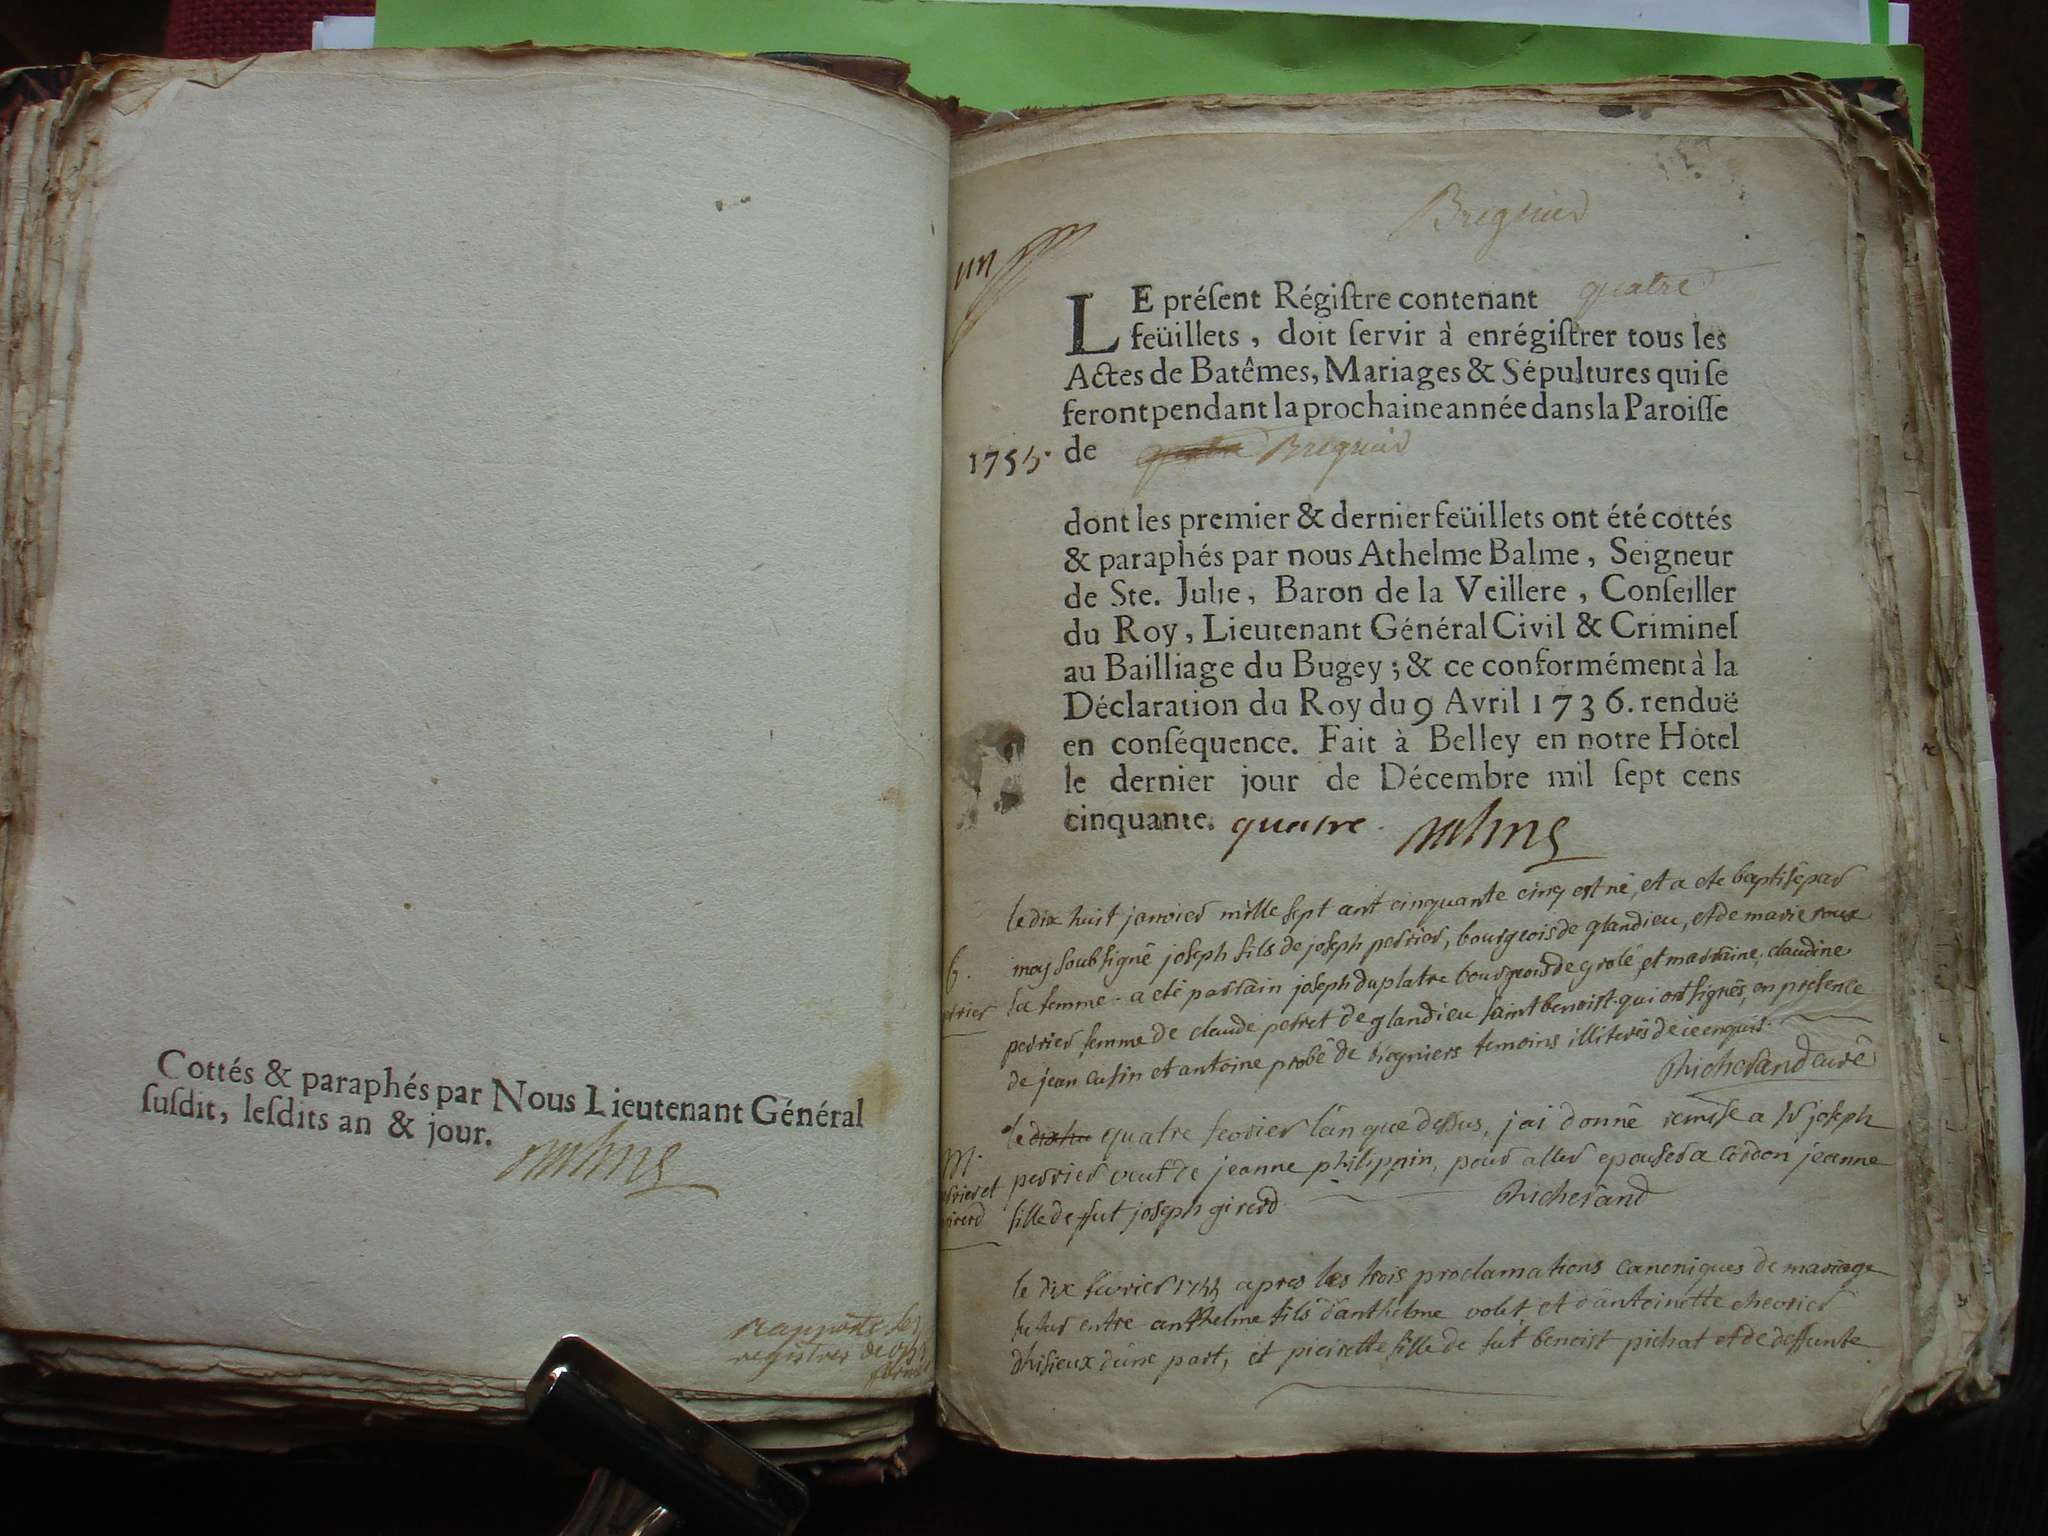 Cottés & paraphés par Nous Lieutenant Général
susdit, lesdits an & jour.
rapporté les
registres de
Bregnier
un
LE présent Régistre contenant quatre
feüillets, doit servir à enrégistrer tous les
Actes de Batêmes, Mariages & Sépultures qui se
feront pendant la prochaine année dans la Paroisse
1755. de quatre Bregnier
dont les premier & dernier feüillets ont été cottés
& paraphés par nous Athelme Balme, Seigneur
de Ste. Julie, Baron de la Veillere, Conseiller
du Roy, Lieutenant Général Civil & Criminel
au Bailliage du Bugey; & ce conformément à la
Déclaration du Roy du 9 Avril 1736. renduë
en conséquence. Fait à Belley en notre Hôtel
le dernier jour de Décembre mil sept cens
cinquante. quatre.
le dix huit janvier mille sept cent cinquante cinq est né, et a ete baptisé par
B. moy soubsigné joseph fils de joseph perrier, bourgeois de glandieu, et de marie roux
sa femme. a eté parrain joseph duplatre bourgeois de grolé et marraine, claudine
perrier femme de claude perret de glandieu saint benoist. qui ont signés, en presence
de jean cusin et antoine probé de bregniers temoins illiterés de ce enquis.
Richerand curé
le dix hu quatre fevrier l'an que dessus, j'ai donné remise a Sr joseph
M. perrier veuf de jeanne philippin, pour aller epouser a Cordon jeanne
fille de ffut joseph girerd. Richerand
le dix fevrier 1755 apres les trois proclamations canoniques de mariage
futur entre anthelme fils d'anthelme volet, et d'antoinette chevrier
d'hisieux d'une part, et pierrette fille de fut benoist pichat et de deffunte